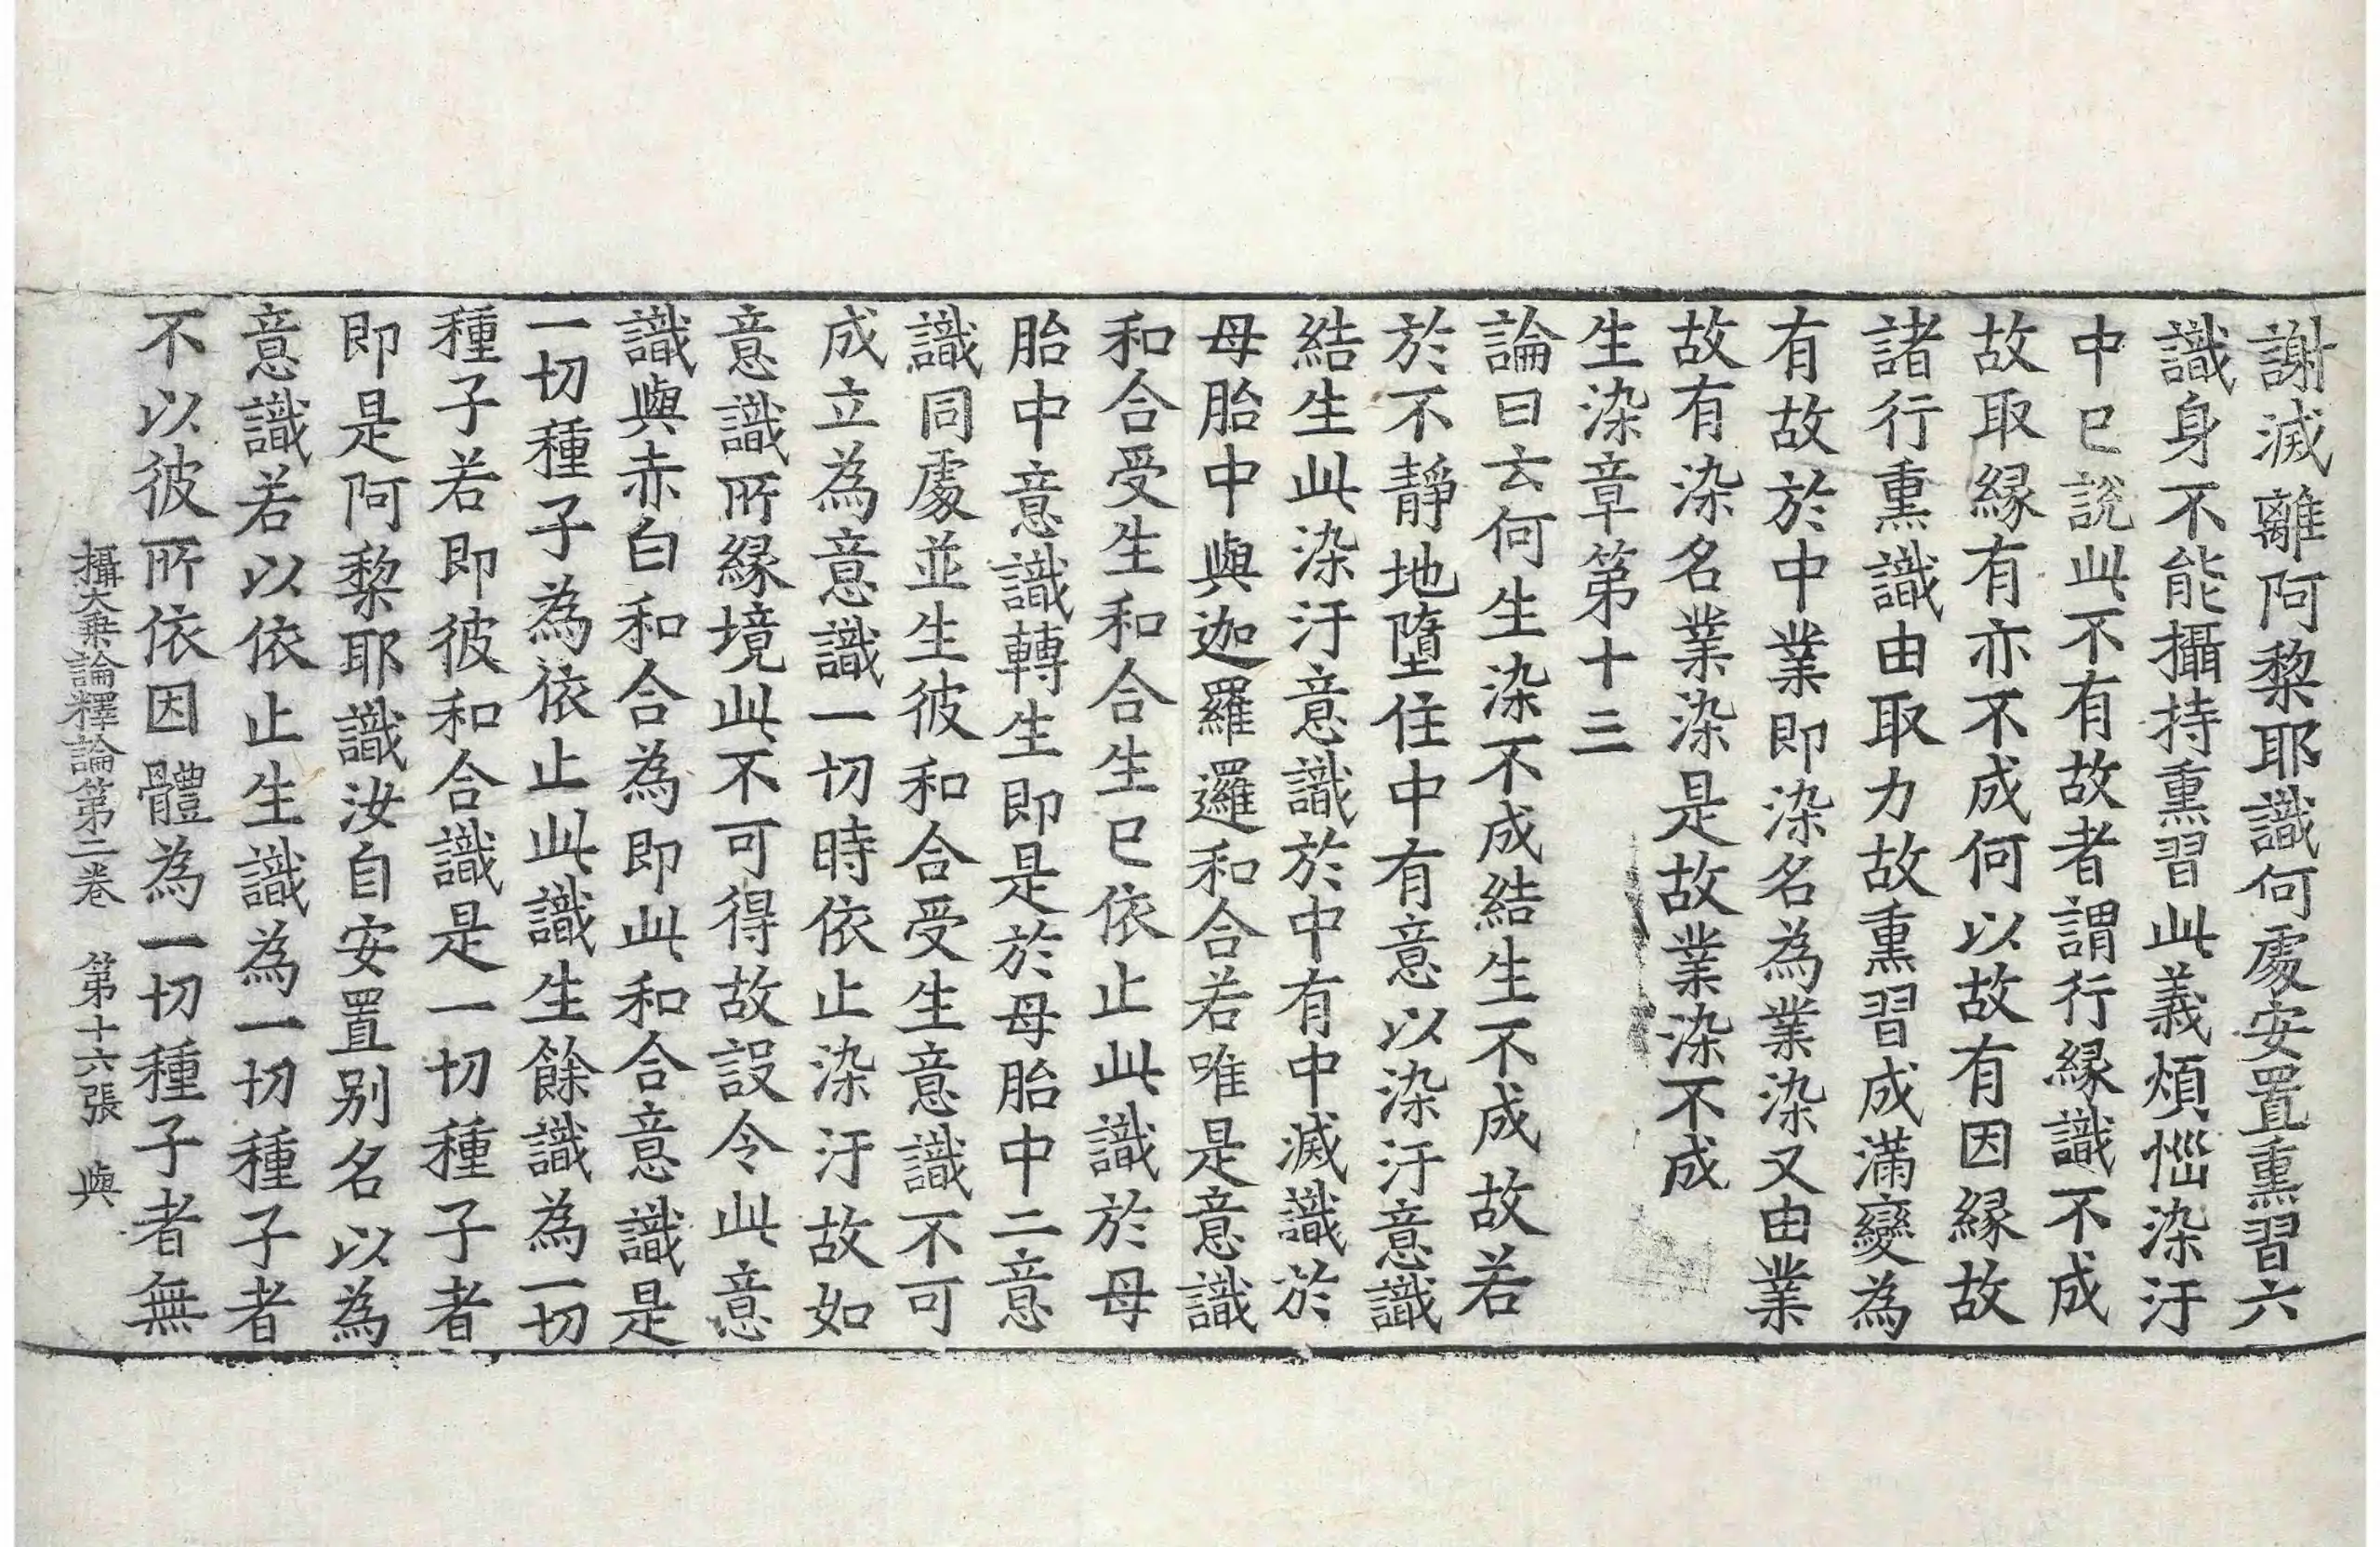 謝滅離阿黎耶識何處安置熏習六
識身不能攝持熏習此義煩惱染汙
中已說此不有故者謂行縁識不成
故取縁有亦不成何以故有因縁故
諸行熏識由取力故熏習成滿變為
有故於中業即染名為業染又由業
故有染名業染是故業染不成
生染章第十三
論曰云何生染不成結生不成故若
於不靜地墮住中有意以染汙意識
結生此染汙意識於中有中滅識於
母胎中與迦羅邏和合若唯是意識
和合受生和合生已依止此識於母
胎中意識轉生即是於母胎中二意
識同處並生彼和合受生意識不可
成立為意識一切時依止染汙故如
意識所縁境此不可得故設令此意
識與赤白和合為即此和合意識是
一切種子為依止此識生餘識為一切
種子若即彼和合識是一切種子者
即是阿黎耶識汝自安置别名以為
意識若以依止生識為一切種子者
不以彼所依因體為一切種子者無
攝大乗論釋論第二卷　第十六張　與